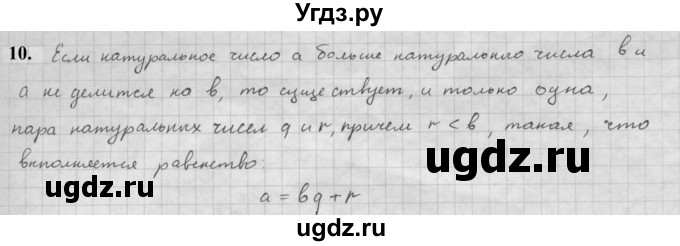 Угдз.ру
10. Если натуральное число a больше натурального числа в и
a не делится на в, то существует, и только одна,
пара натуральных чисел q и r, причем r < в, такая, что
выполняется равенство
ugdz.ru ugdz.ru
a = вq + r
ugdz.ru ugdz.ru